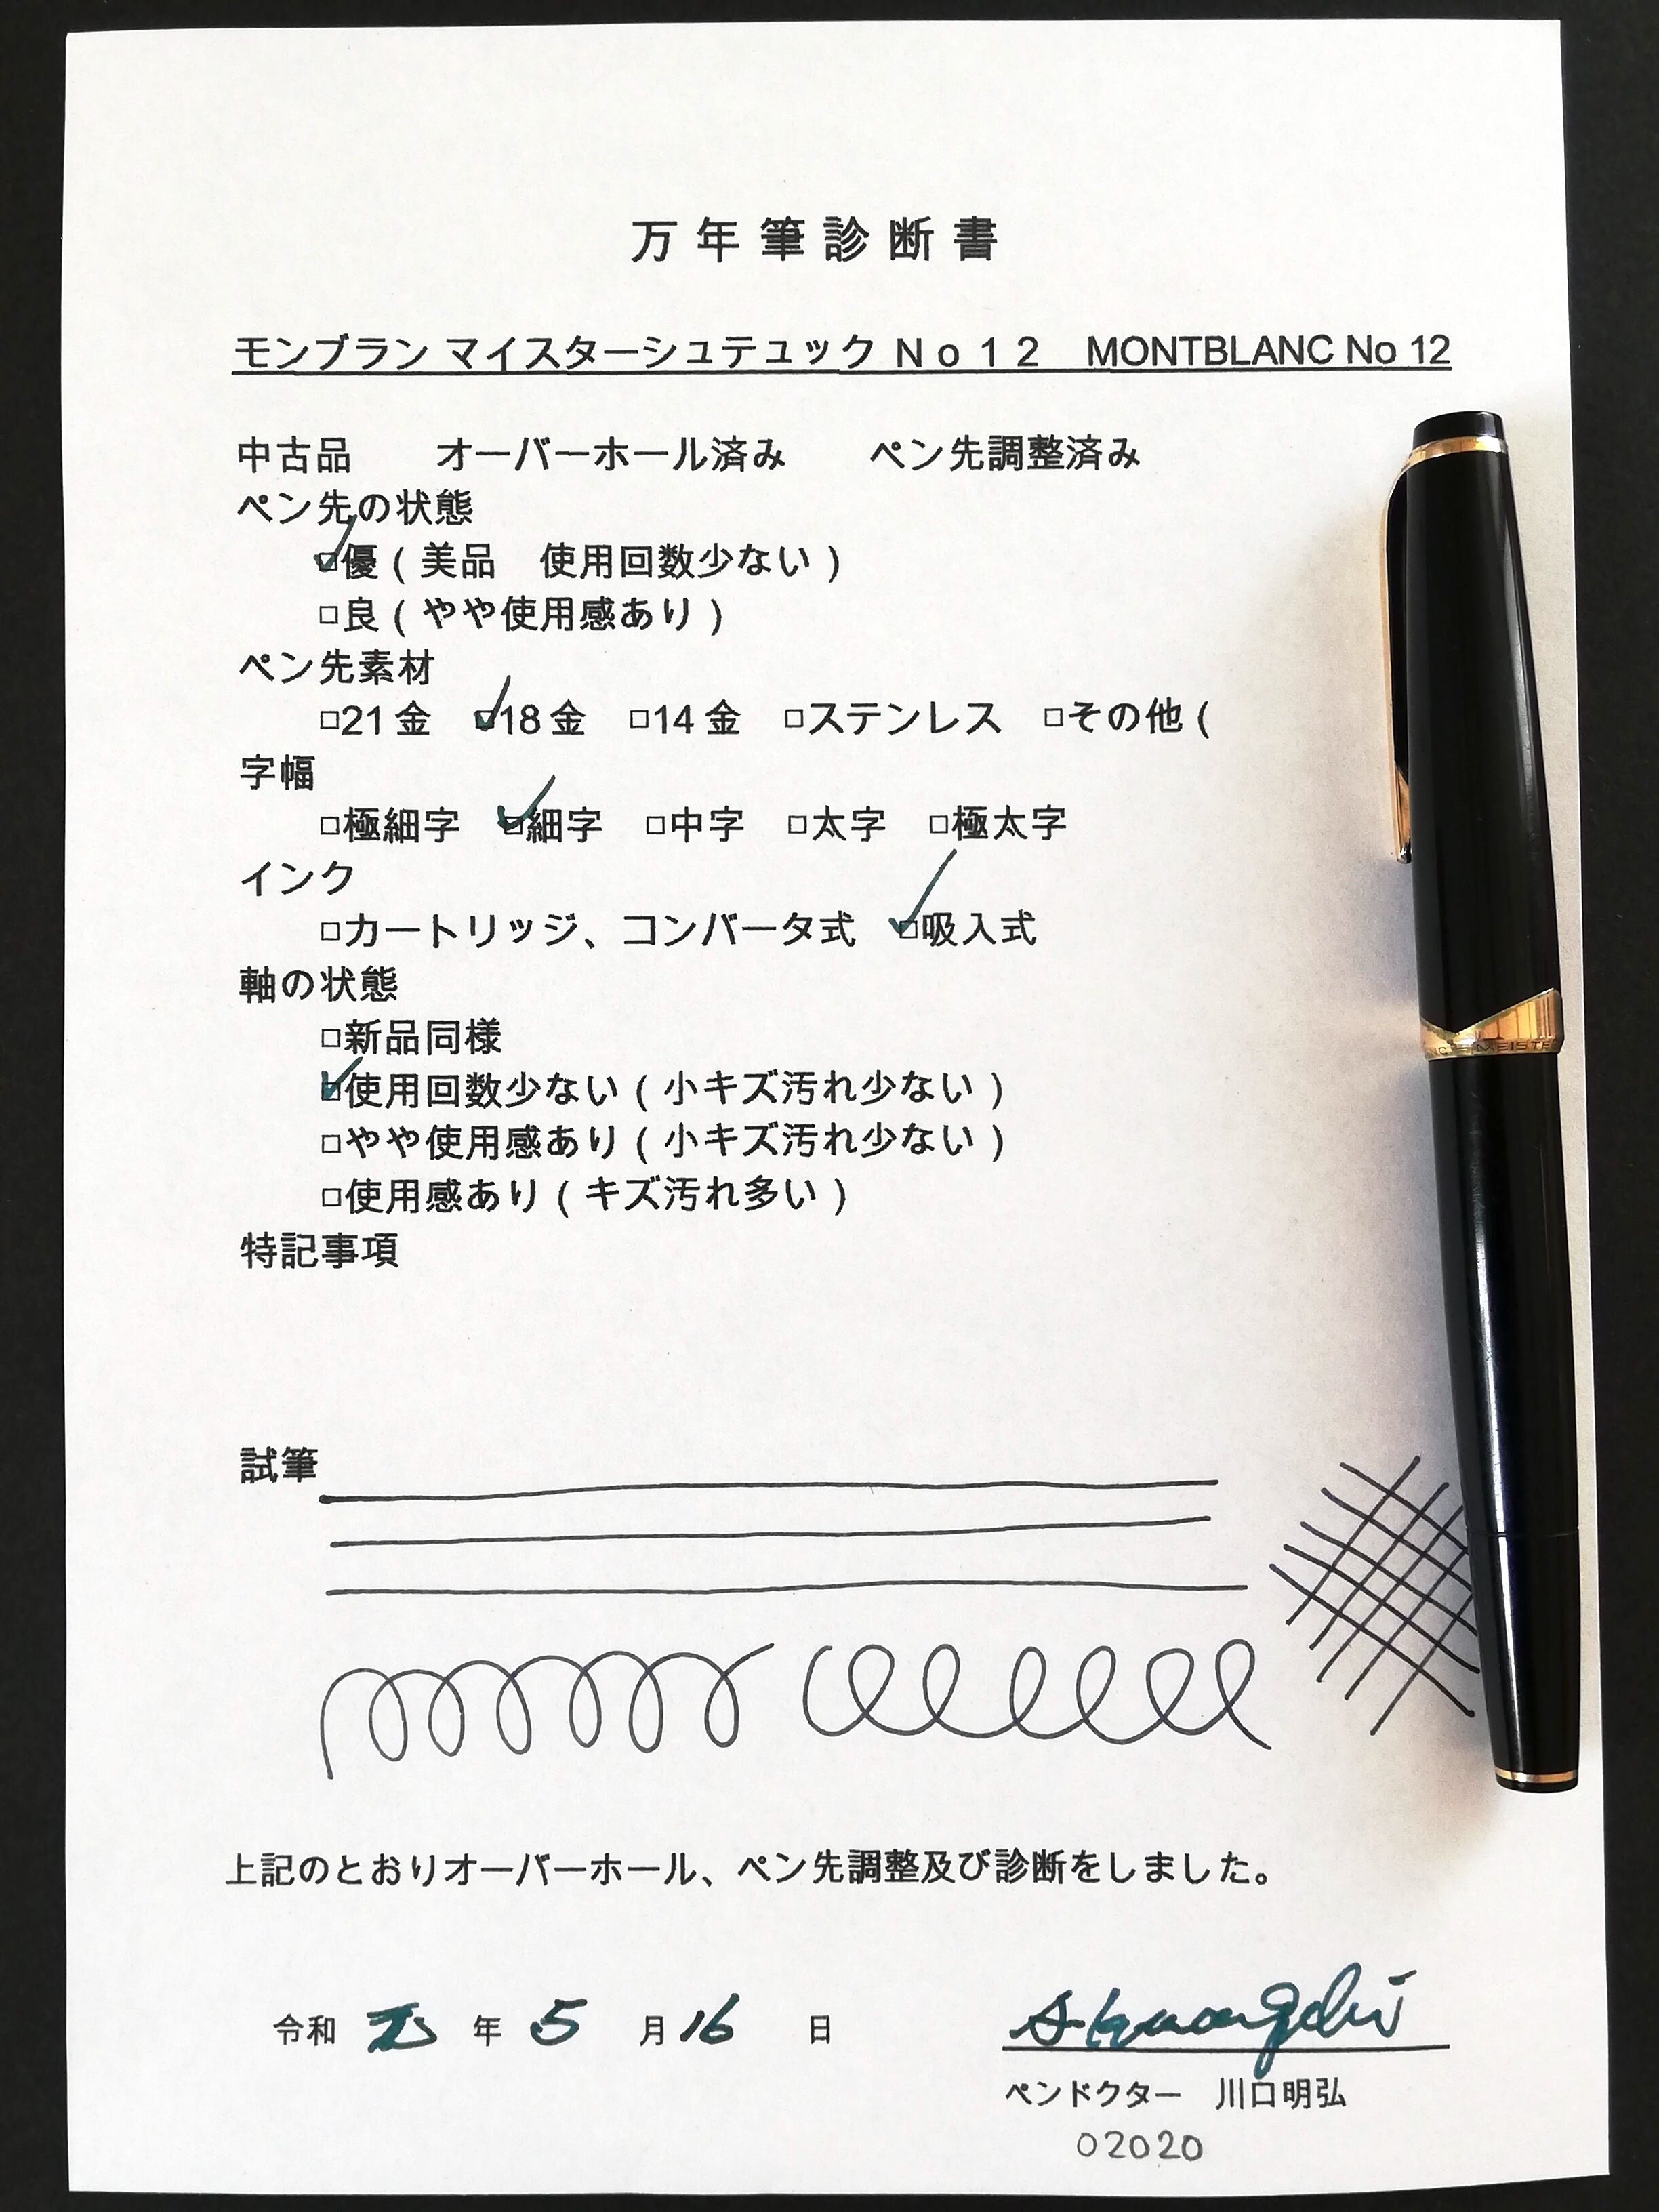 万年筆診断書
モンブラン マイスターシュテュック Ｎｏ１２　MONTBLANC No 12
中古品　　オーバーホール済み　　ペン先調整済み
ペン先の状態
☑優（美品　使用回数少ない）
□良（やや使用感あり）
ペン先素材
□21金　☑18金　□14金　□ステンレス　□その他（
字幅
□極細字　☑細字　□中字　□太字　□極太字
インク
□カートリッジ、コンバータ式　☑吸入式
軸の状態
□新品同様
☑使用回数少ない（小キズ汚れ少ない）
□やや使用感あり（小キズ汚れ少ない）
□使用感あり（キズ汚れ多い）
特記事項
試筆
上記のとおりオーバーホール、ペン先調整及び診断をしました。
令和 元 年 5 月 16 日
ペンドクター　川口明弘
02020
MEISTE